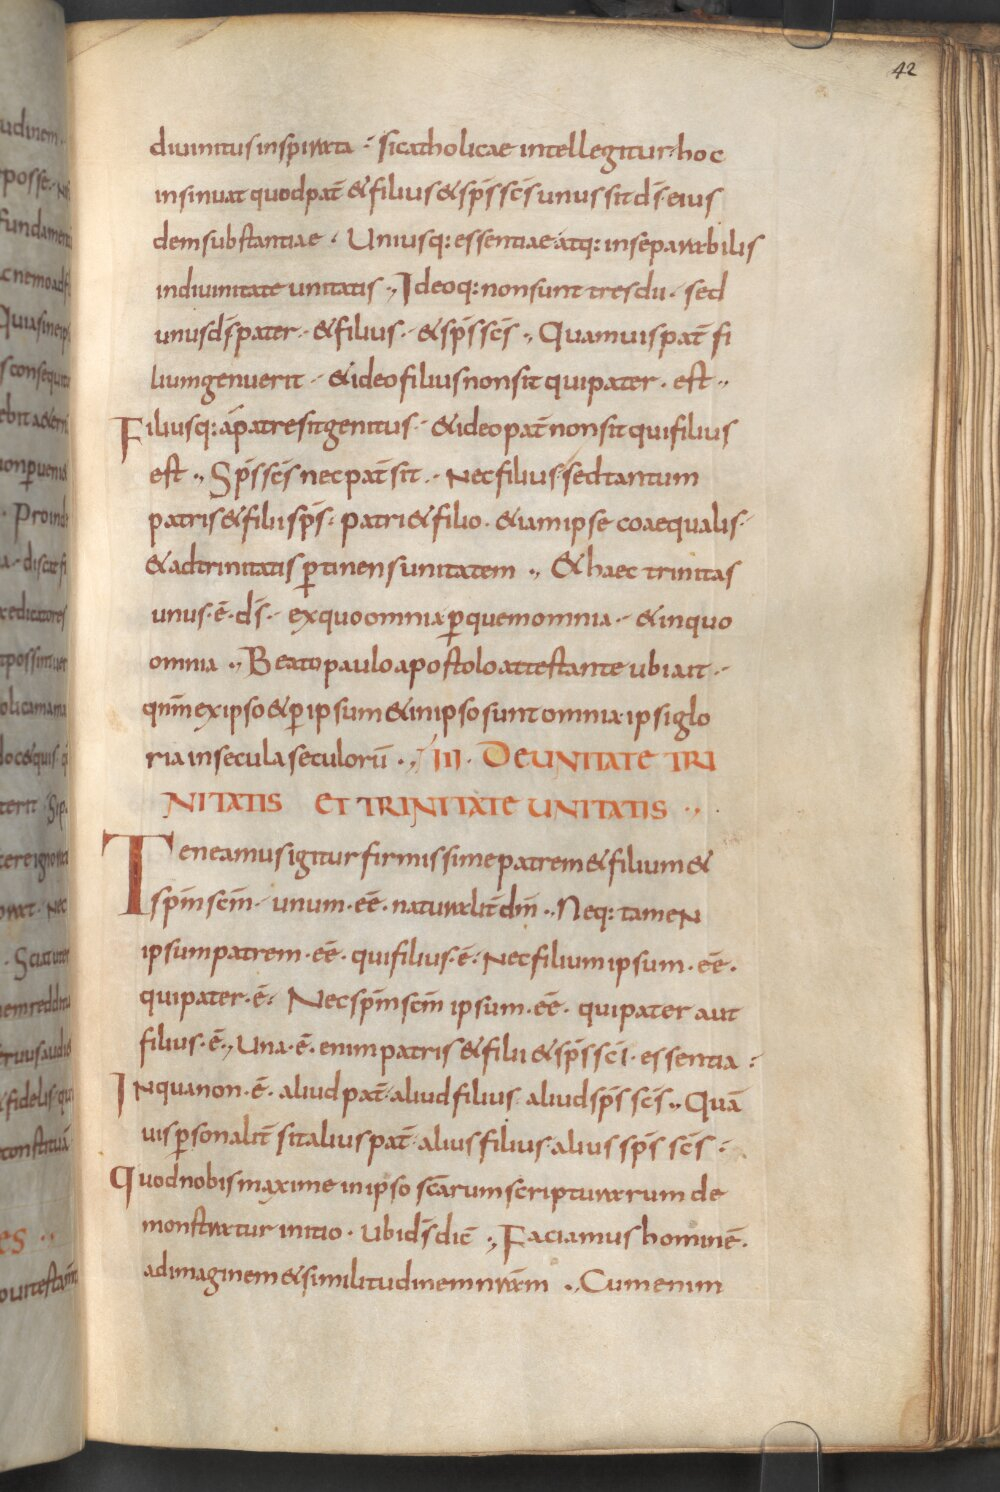 42
diuinitus inspirata · sicatholicae intellegitur · hoc
insinuat quod pat̄ & filius & sp̄s sc̄s unus sit d̄s · eius
dem substantiae · Uniusq: essentiae atq: inseparabilis
indiuinitate unitatis ·, Ideoq: non sunt tres dii · sed
unus d̄s pater · & filius · & sp̄s sc̄s ·, Quamuis pat̄ fi
lium genuerit · & ideo filius non sit qui pater · est ·,
Filiusq: a patre sit genitus · & ideo pat̄ non sit qui filius
est ·, Sp̄s sc̄s nec pat̄ sit · Nec filius · sed tantum
patris & filii sp̄s · patri & filio · & iam ipse coaequalis ·
& ad trinitatis ꝑtinens unitatem ·, & haec trinitas
unus · ē · d̄s · ex quo omnia ꝑ quem omnia · & in quo
omnia ·, Beato paulo apostolo attestante ubi ait ·
qnm̄ ex ipso & ꝑ ipsum & in ipso sunt omnia · ipsi glo
ria in secula seculorū ·, III · DE UNITATE TRI
NITATIS ET TRINITATE UNITATIS ·,
Teneamus igitur firmissime patrem & filium &
sp̄m sc̄m · unum · ēē · naturalit̄ dm̄ ·, Neq: tamen
ipsum patrem · ēē · qui filius · ē · Nec filium ipsum · ēē ·
qui pater · ē · Nec sp̄m sc̄m ipsum · ēē · qui pater aut
filius · ē ·, Una · ē · enim patris & filii & sp̄s sc̄i · essentia :
In qua non · ē · aliud pat̄ · aliud filius · aliud sp̄s sc̄s ·, Quā
uis ꝑsonalit̄ sit alius pat̄ · alius filius · alius sp̄s sc̄s ·
Quod nobis maxime in ipso sc̄arum scripturarum de
monstratur initio · ubi d̄s dic̄ ·, Faciamus hominē ·
ad imaginem & similitudinem nr̄am ·, Cum enim